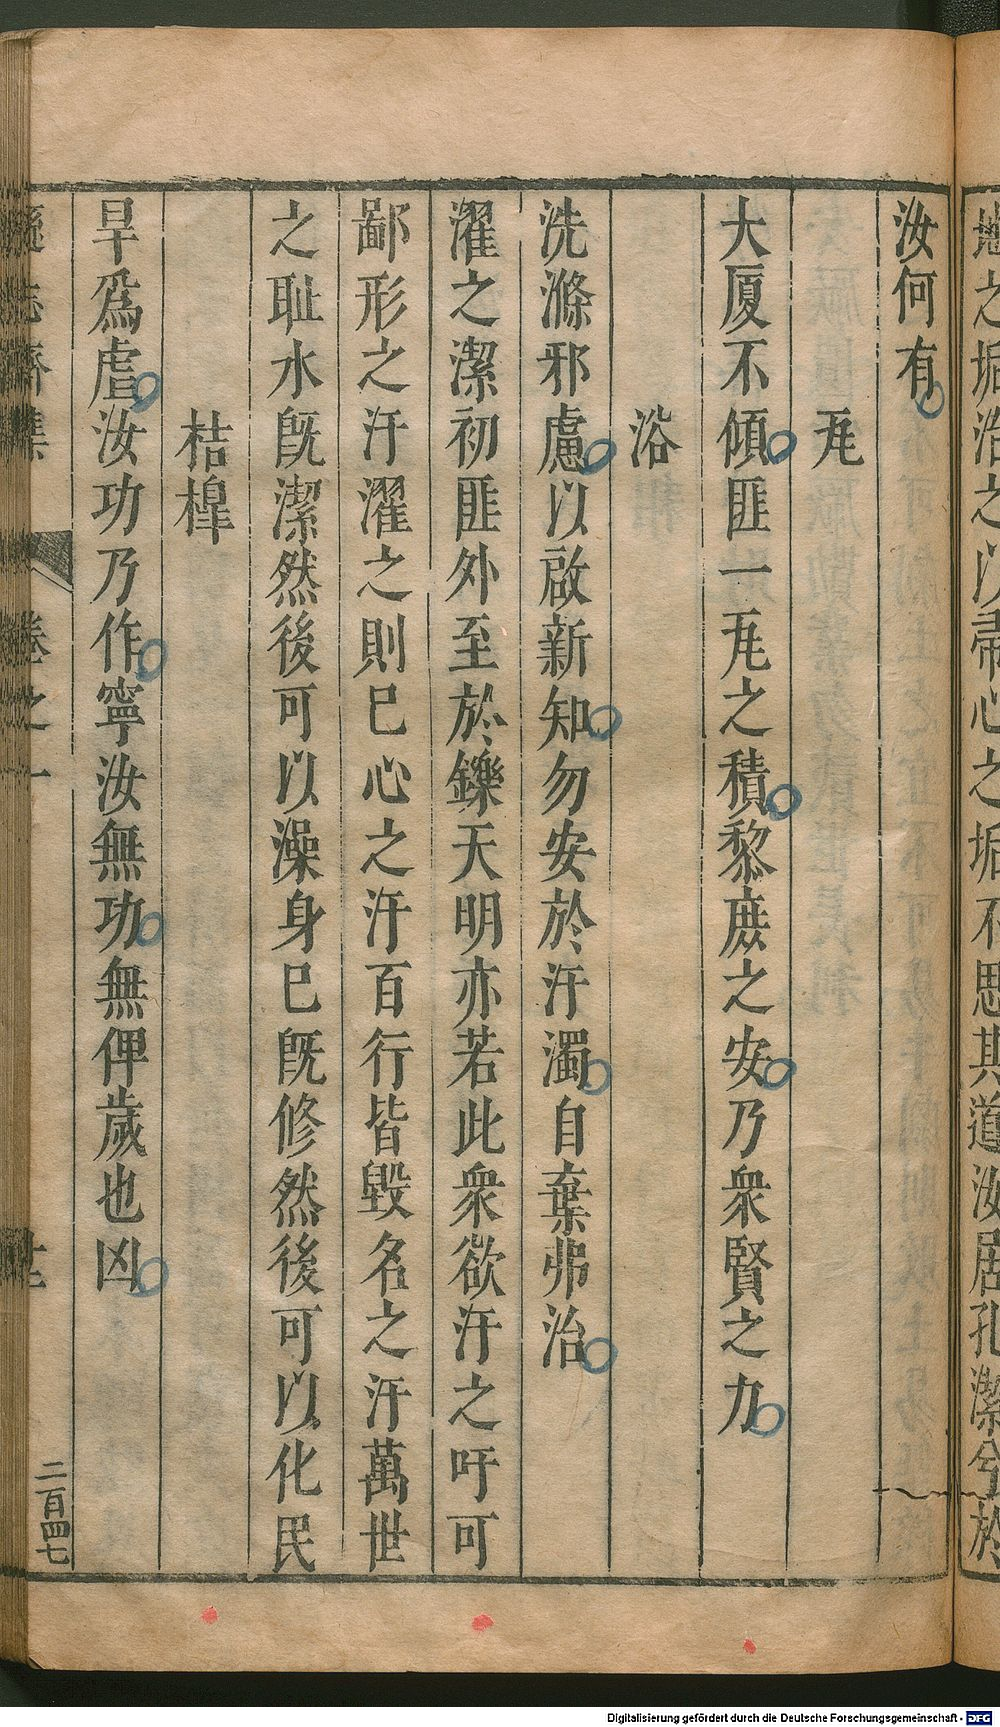 汝何有
瓦
大厦不傾匪一瓦之積黎庶之安乃衆賢之力
浴
洗滌邪慮以啟新知勿安於汙濁自棄弗治
濯之潔初匪外至於鑠天明亦若此衆欲汙之吁可
鄙形之汙濯之則已心之汙百行皆毀名之汙萬世
之恥水旣潔然後可以澡身已旣修然後可以化民
桔槹
旱爲虐汝功乃作寧汝無功無俾歲也凶
遜志齋集 卷之一
二百四七
之垢浩之以 心之垢不思其道汝居孔潔兮於
Digitalisierung gefördert durch die Deutsche Forschungsgemeinschaft - DFG